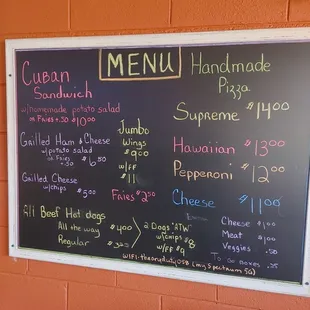 MENU
Cuban
Sandwich
w/homemade potato salad
or Fries +.50 $10.00
Grilled Ham & Cheese
w/potato salad
or Fries
+.50 $6.50
Grilled Cheese
w/chips $5.00
Jumbo
Wings
$9.00
w/FF
$11
Fries $2.50
All Beef Hot dogs
All the way $4.00
Regular
2 Dogs "ATW"
w/chips $8
w/FF $9
Handmade
Pizza
Supreme $14.00
Hawaiian $13.00
Pepperoni $12.00
Cheese $11.00
Cheese $1.00
Meat $1.00
Veggies .50